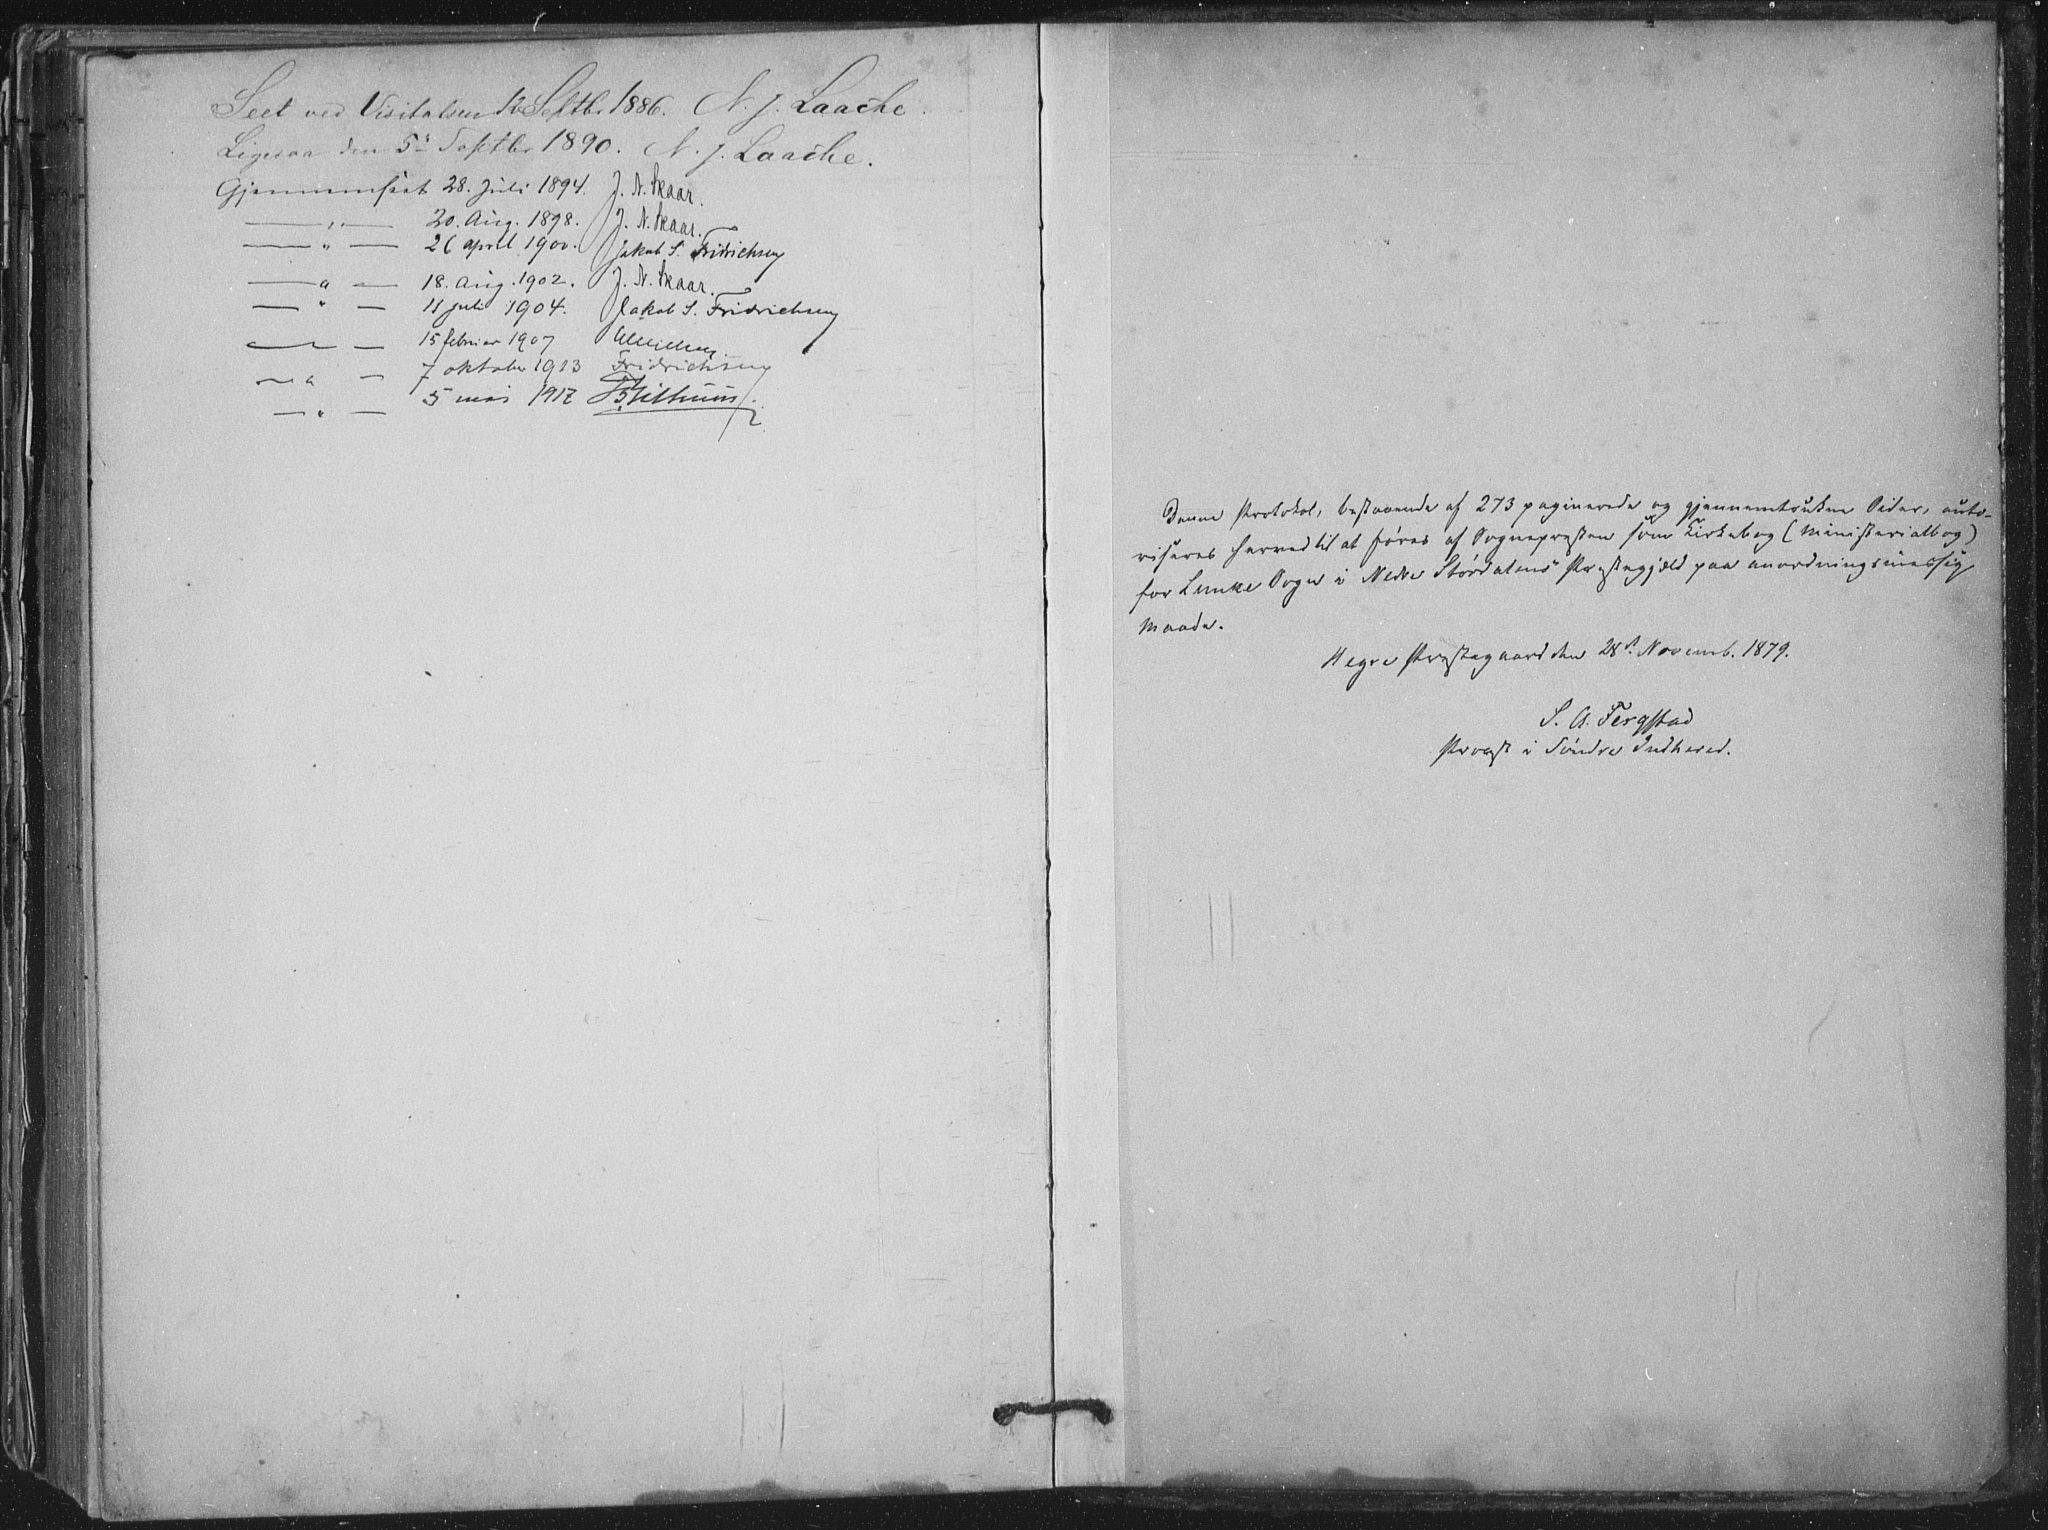 Seet ved Visitatsen 12 Septbr 1886. N. J. Laache.
Ligesaa den 5te Septbr 1890. N. J. Laache.
Gjennemseet 28. Juli 1894. J. N. Skaar.
— „ — 20. Aug. 1898. J. N. Skaar.
— „ — 26 april 1900. Jakob S. Fridrichsen
— „ — 18. Aug. 1902. J. N. Skaar.
— „ — 11 juli 1904. Jakob S. Fridrichsen
— „ — 15 februar 1907
— „ — 7 oktober 1913 Fridrichsen
— „ — 5 mai 1917
Denne Protokol, bestaaende af 273 paginerede og gjennemtrukne Sider, auto-
riseres herved til at føres af Sognepresten som Kirkebog (Ministerialbog)
for Lånke Sogn i Nedre Størdalens Præstegjeld paa anordningsmæssig
Maade.
Hegre Præstegaard den 28de Novemb. 1879.
S. A. Fergstad
Provst i Søndre Indhered.